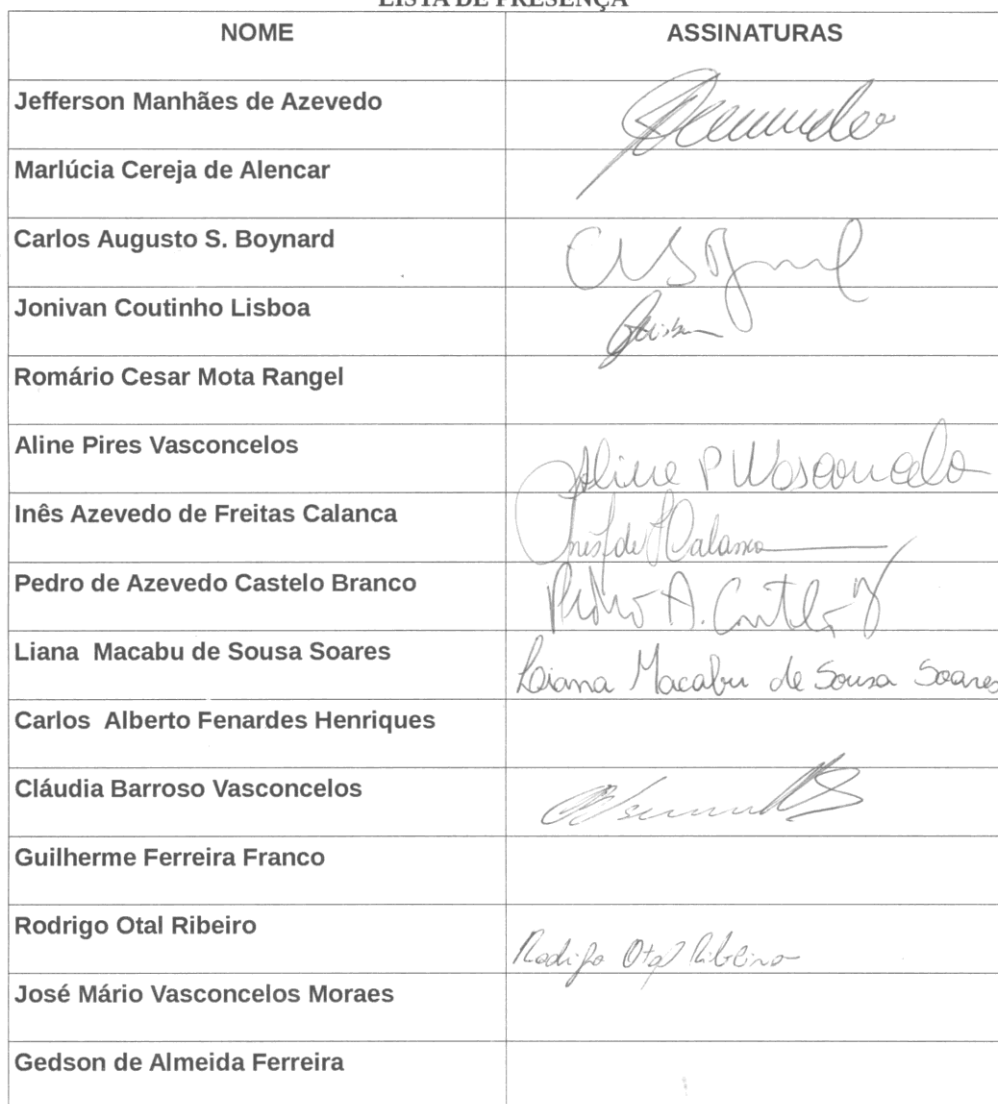 LISTA DE PRESENÇA
NOME ASSINATURAS
Jefferson Manhães de Azevedo
Marlúcia Cereja de Alencar
Carlos Augusto S. Boynard
Jonivan Coutinho Lisboa
Romário Cesar Mota Rangel
Aline Pires Vasconcelos Aline P Vasconcelo
Inês Azevedo de Freitas Calanca Calanca
Pedro de Azevedo Castelo Branco Pedro A.
Liana Macabu de Sousa Soares Liana Macabu de Sousa Soares
Carlos Alberto Fenardes Henriques
Cláudia Barroso Vasconcelos
Guilherme Ferreira Franco
Rodrigo Otal Ribeiro Rodrigo Otal Ribeiro
José Mário Vasconcelos Moraes
Gedson de Almeida Ferreira